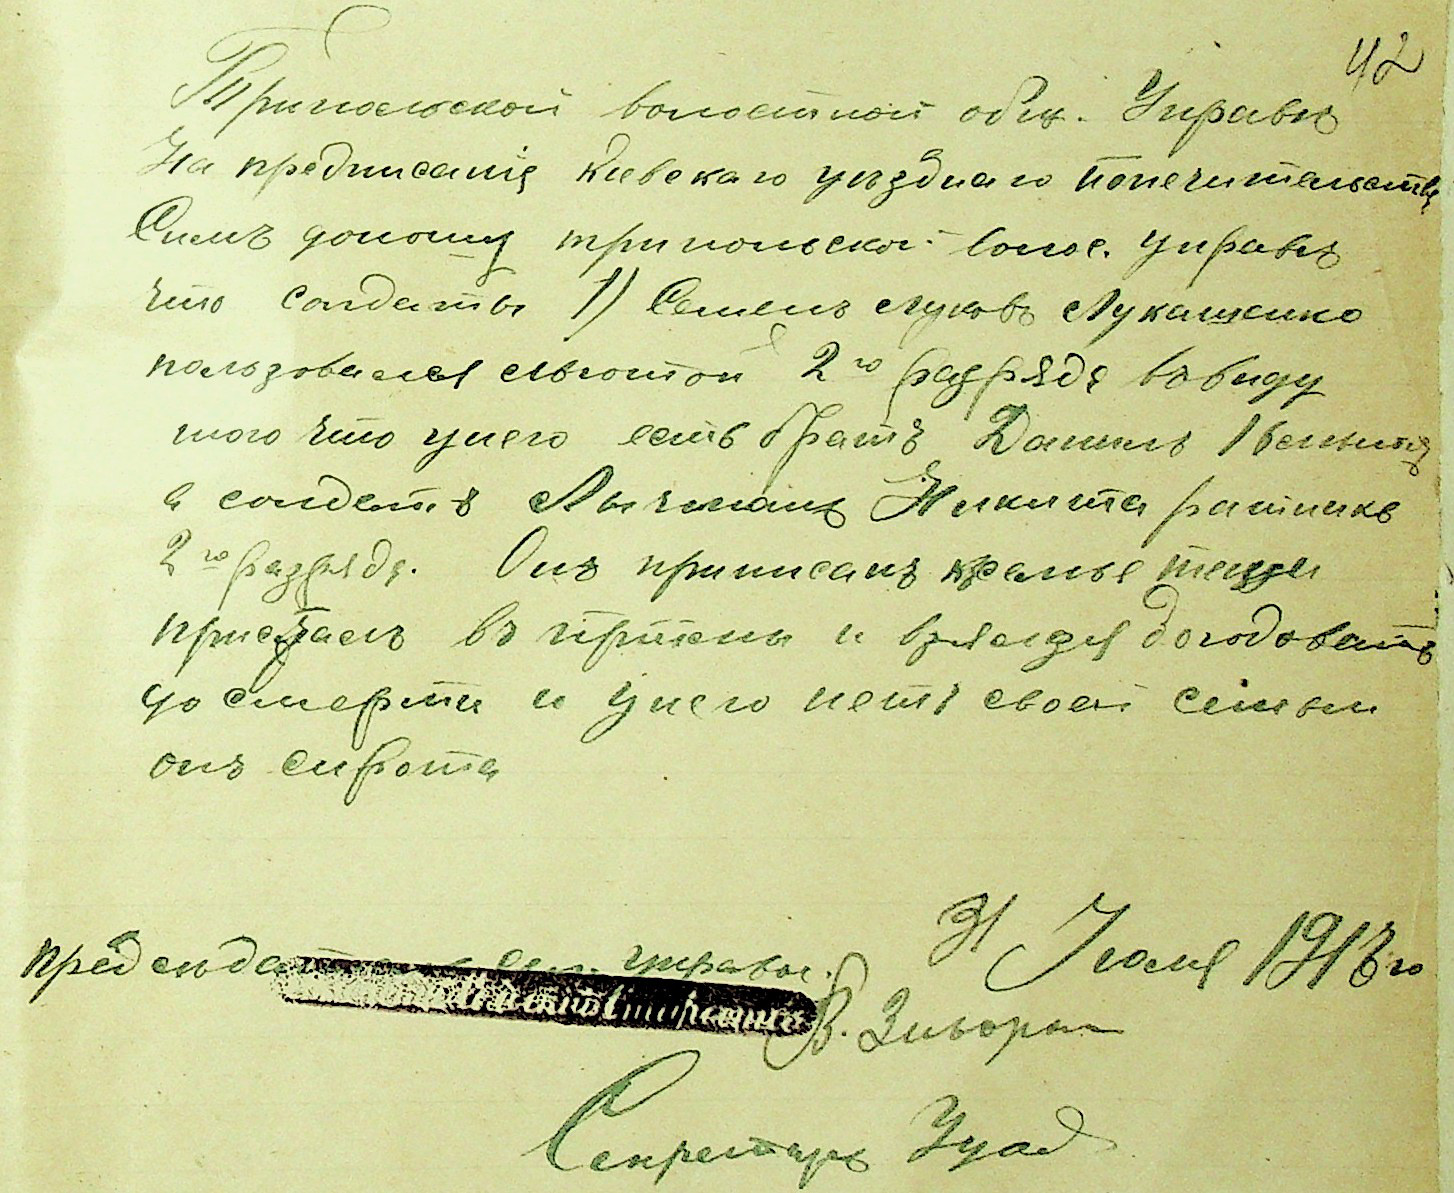 42
Трипольской волостной общ. Управѣ
На предписанія Киевскаго уѣзднаго попечительства
Симъ доношу трипольской волос. управѣ
что солдаты 1) Семенъ Луковъ Лукашенко
пользовался льготой 2го разряда ввиду
того что унего есть братъ Данилъ
а солдатъ Никита ратникъ
2го разряда. Онъ приписанъ ксемье тещи
присталъ въ приймы и взялся догодовать
до смерти и унего нетъ своей семьи
онъ сирота
31 Июля 1917го
председатель управы
Секретарь